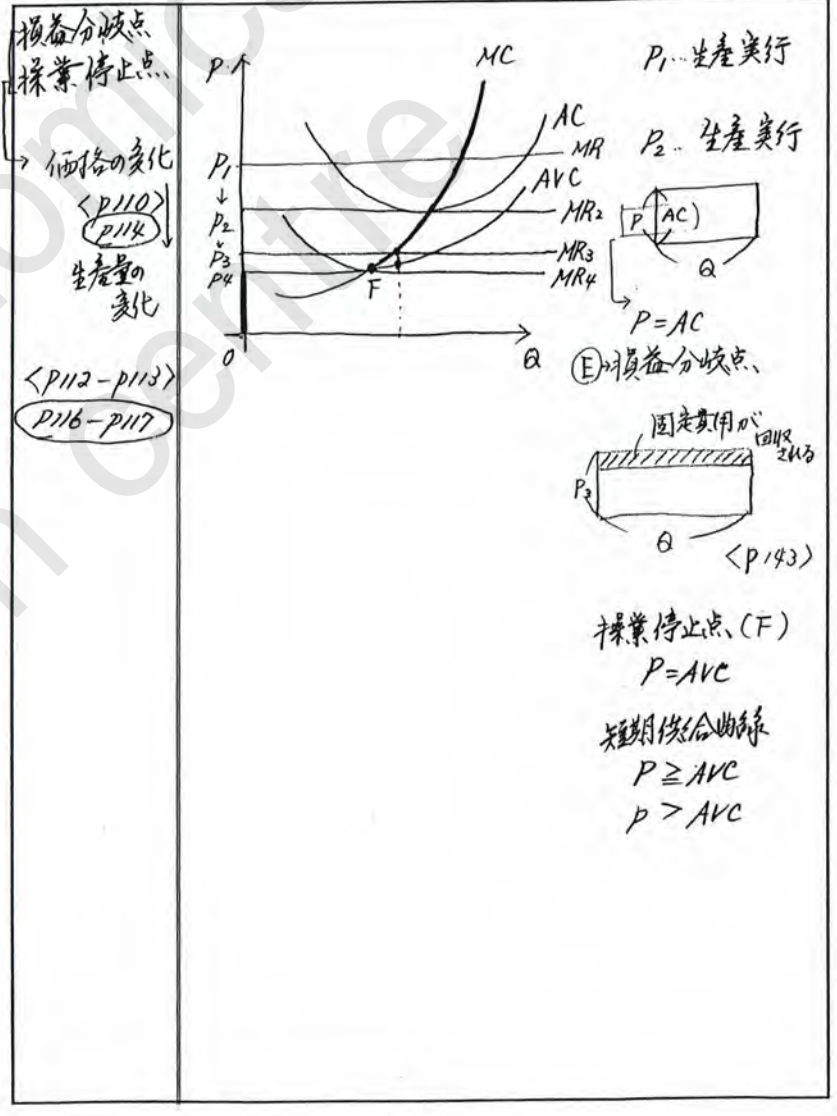 損益分岐点
操業停止点
→ 価格の変化
<p110>
p114
生産量の
変化
<p112-p113>
p116-p117
P
P1
↓
P2
↓
P3
P4
O
Q
MC
AC
MR
AVC
MR2
MR3
MR4
F
P1…生産実行
P2‥生産実行
P
AC)
Q
P=AC
Ⓔ→損益分岐点、
固定費用が
回収
される
P3
Q
<p143>
操業停止点、(F)
P=AVC
短期供給曲線
P≧AVC
P>AVC
omic
centre